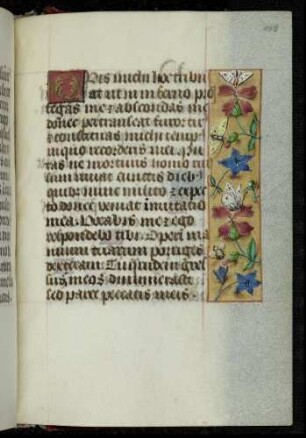 Quis michi hoc tribu
at ut in inferno pro
tegas me et abscondas me
donec pertranseat furor tu
et constituas michi temp
in quo recorderis mei Qui
tas ne mortuus homo rur
sum vivat cunctis dieb
quibus nunc milito et expec
to donec veniat immutatio
mea Vocabis me et ego
respondebo tibi Operi ma
nuum tuarum porriges
dexteram Tu quidem gres
sus meos dinumerasti
sed parce peccatis meis